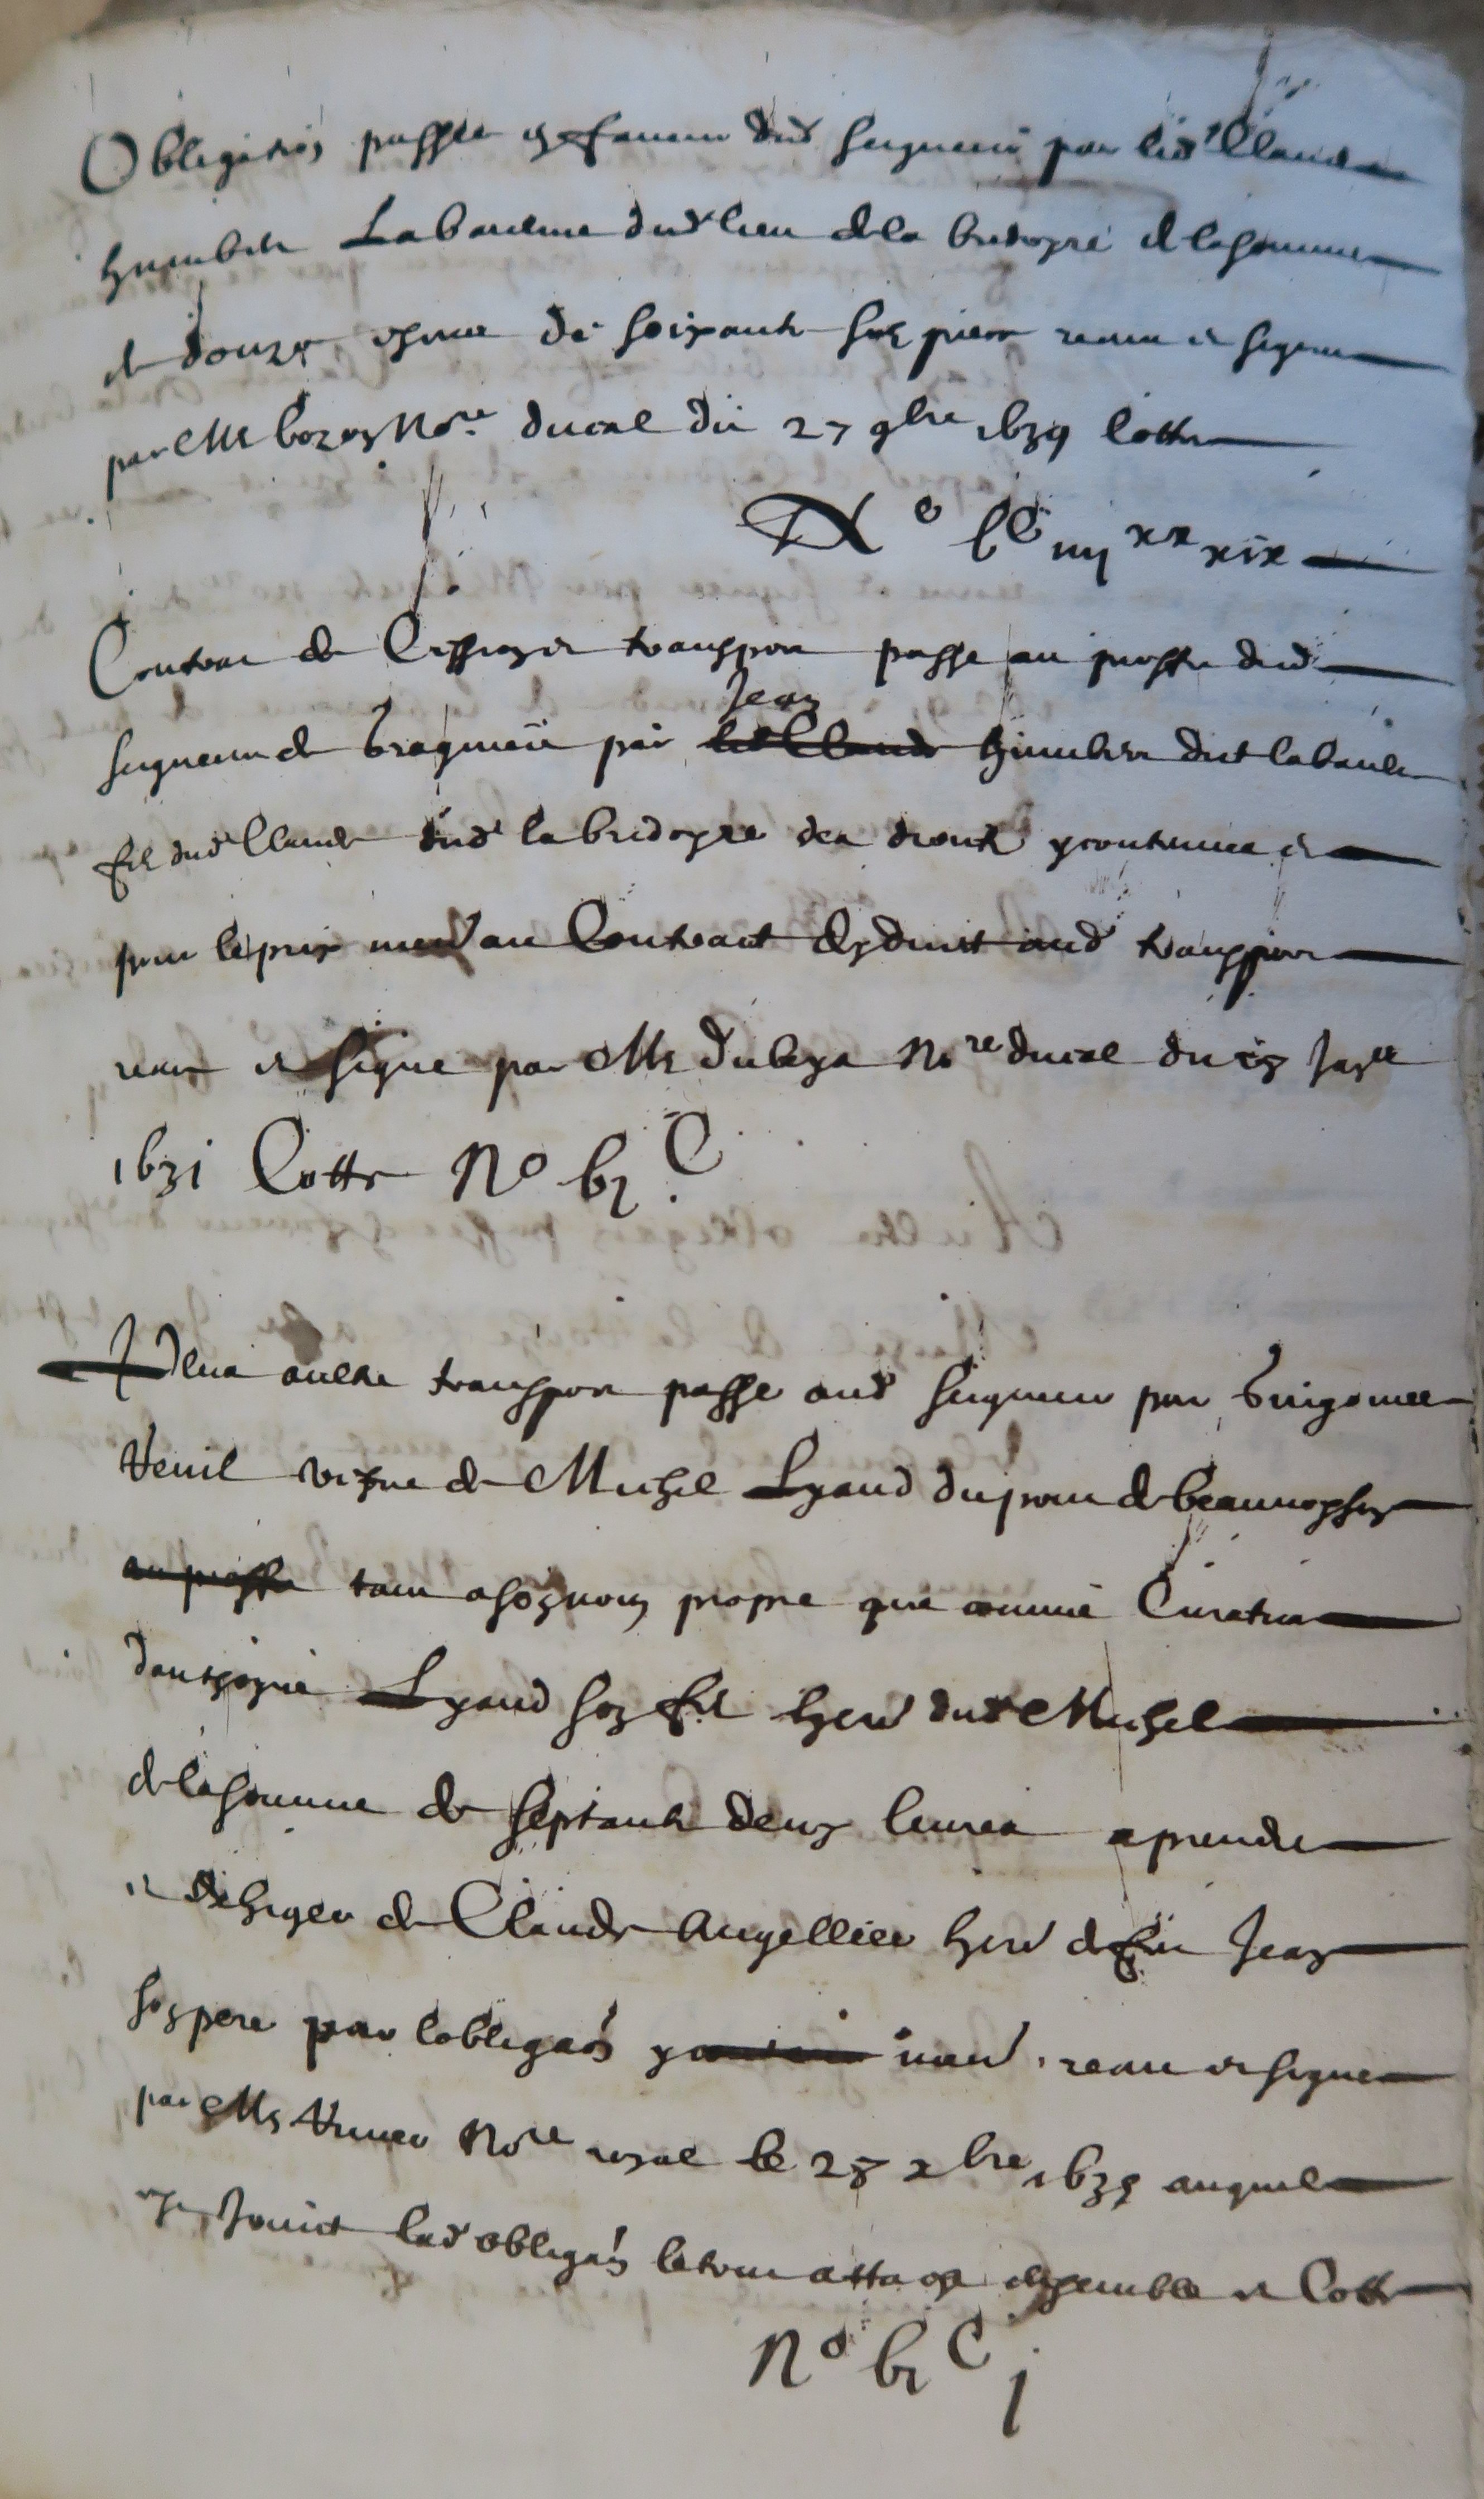 Obligation passée en faveur dud seigneur par led Claude
humbert Labaulme dud lieu de la bridoyre de la somme
de douze escus de soixante solz piece receu et signee
par Me bozon Nore ducal du 27 9bre 1639 Cotte
No bc iiii xx xix
Contrac de Cession et transport passe au proffit dud
seigneur de par Jean humbert dict labaulme
fil dud Claude dud la bridoyre des droitz y contenus et
pour le pris men au Contract dud transport
receu et signe par Me Nore ducal du Janer
1631 Cotte No bi C
Item aultre transport passe aud seigneur par
vefue de Michel Lyand du pont de beauvoysin
au proffit tant a son nom propre que comme Curatrice
danthoyne Lyand son fil hery dud Michel
de la somme de septante deux livres a prendre
et exhiger de Claude Angellier hery de feu Jean
son pere par lobligaon y men receu et signee
par Me Nore royal le 28 xbre 1639 auquel
est Joinct lad obligaon le tout attaché ensemble et Cotte
No bi C j